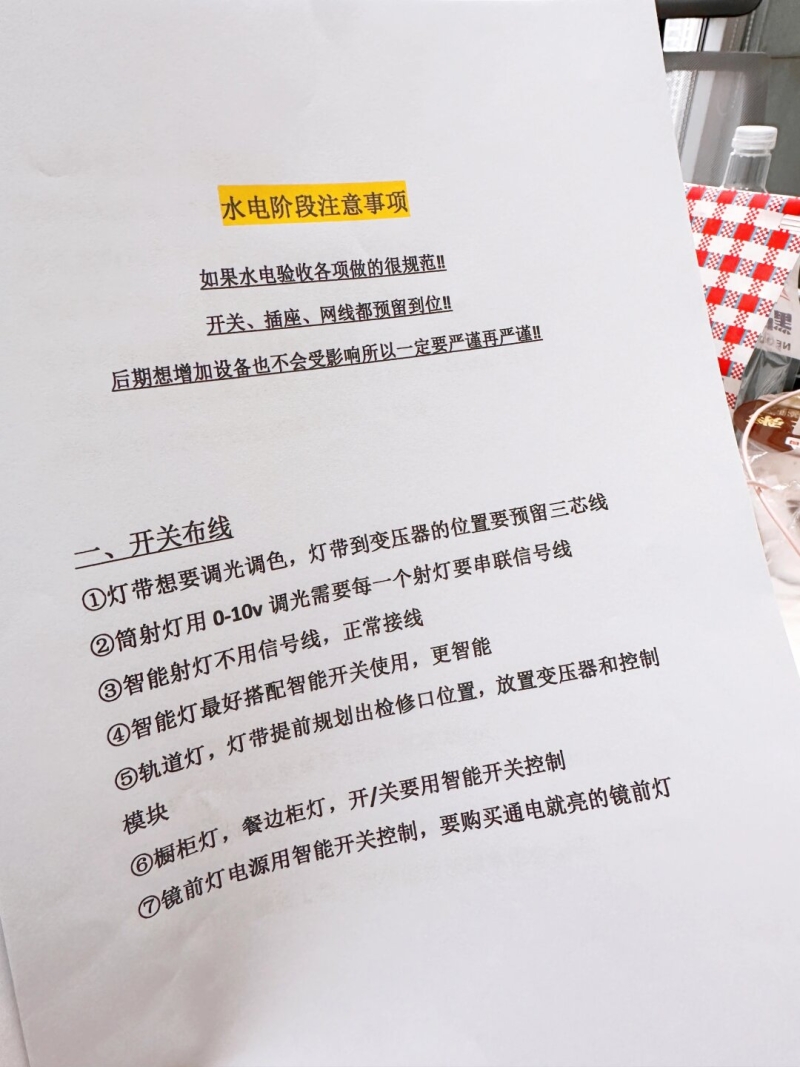 水电阶段注意事项
如果水电验收各项做的很规范!!
开关、插座、网线都预留到位!!
后期想增加设备也不会受影响所以一定要严谨再严谨!!
一、开关布线
①灯带想要调光调色，灯带到变压器的位置要预留三芯线
②筒射灯用 0-10v 调光需要每一个射灯要串联信号线
③智能射灯不用信号线，正常接线
④智能灯最好搭配智能开关使用，更智能
⑤轨道灯，灯带提前规划出检修口位置，放置变压器和控制
模块
⑥橱柜灯，餐边柜灯，开/关要用智能开关控制
⑦镜前灯电源用智能开关控制，要购买通电就亮的镜前灯